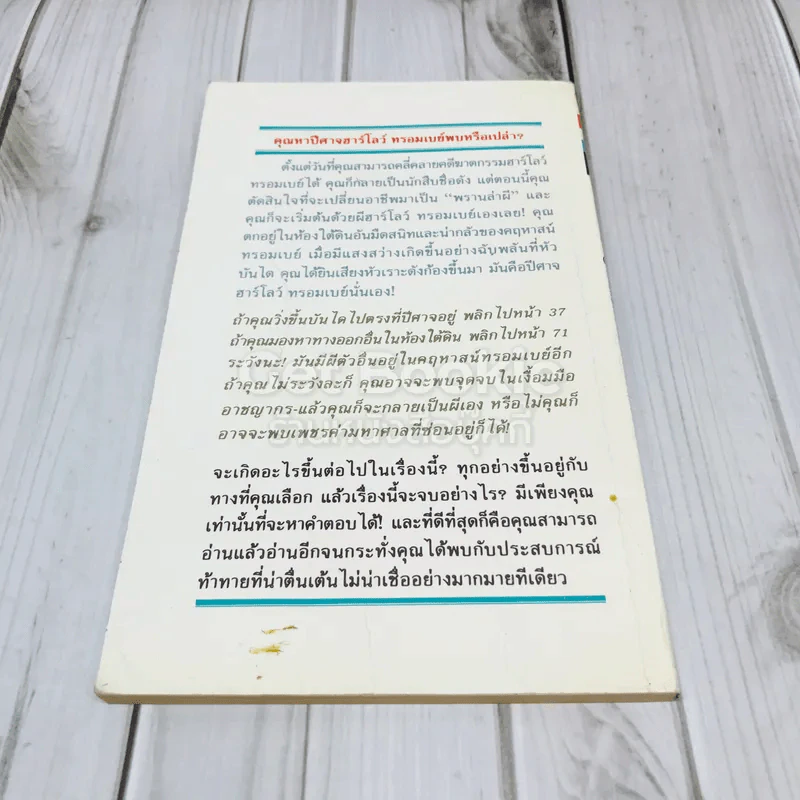 คุณหาปีศาจฮาร์โลว์ ทรอมเบย์พบหรือเปล่า?
ตั้งแต่วันที่คุณสามารถคลี่คลายคดีฆาตกรรมฮาร์โลว์
ทรอมเบย์ได้ คุณก็กลายเป็นนักสืบชื่อดัง แต่ตอนนี้คุณ
ตัดสินใจที่จะเปลี่ยนอาชีพมาเป็น “พรานล่าผี” และ
คุณก็จะเริ่มต้นด้วยผีฮาร์โลว์ ทรอมเบย์เองเลย! คุณ
ตกอยู่ในห้องใต้ดินอันมืดสนิทและน่ากลัวของคฤหาสน์
ทรอมเบย์ เมื่อมีแสงสว่างเกิดขึ้นอย่างฉับพลันที่หัว
บันได คุณได้ยินเสียงหัวเราะดังก้องขึ้นมา มันคือปีศาจ
ฮาร์โลว์ ทรอมเบย์นั่นเอง!
ถ้าคุณวิ่งขึ้นบันไดไปตรงที่ปีศาจอยู่ พลิกไปหน้า 37
ถ้าคุณมองหาทางออกอื่นในห้องใต้ดิน พลิกไปหน้า 71
ระวังนะ! มันมีผีตัวอื่นอยู่ในคฤหาสน์ทรอมเบย์อีก
ถ้าคุณไม่ระวังละก็ คุณอาจจะพบจุดจบในเงื้อมมือ
อาชญากร-แล้วคุณก็จะกลายเป็นผีเอง หรือไม่คุณก็
อาจจะพบเพชรค่ามหาศาลที่ซ่อนอยู่ก็ได้!
Get Bookie
ร้านหนังสือบุ๊คกี้
จะเกิดอะไรขึ้นต่อไปในเรื่องนี้? ทุกอย่างขึ้นอยู่กับ
ทางที่คุณเลือก แล้วเรื่องนี้จะจบอย่างไร? มีเพียงคุณ
เท่านั้นที่จะหาคำตอบได้! และที่ดีที่สุดก็คือคุณสามารถ
อ่านแล้วอ่านอีกจนกระทั่งคุณได้พบกับประสบการณ์
ท้าทายที่น่าตื่นเต้นไม่น่าเชื่ออย่างมากมายทีเดียว